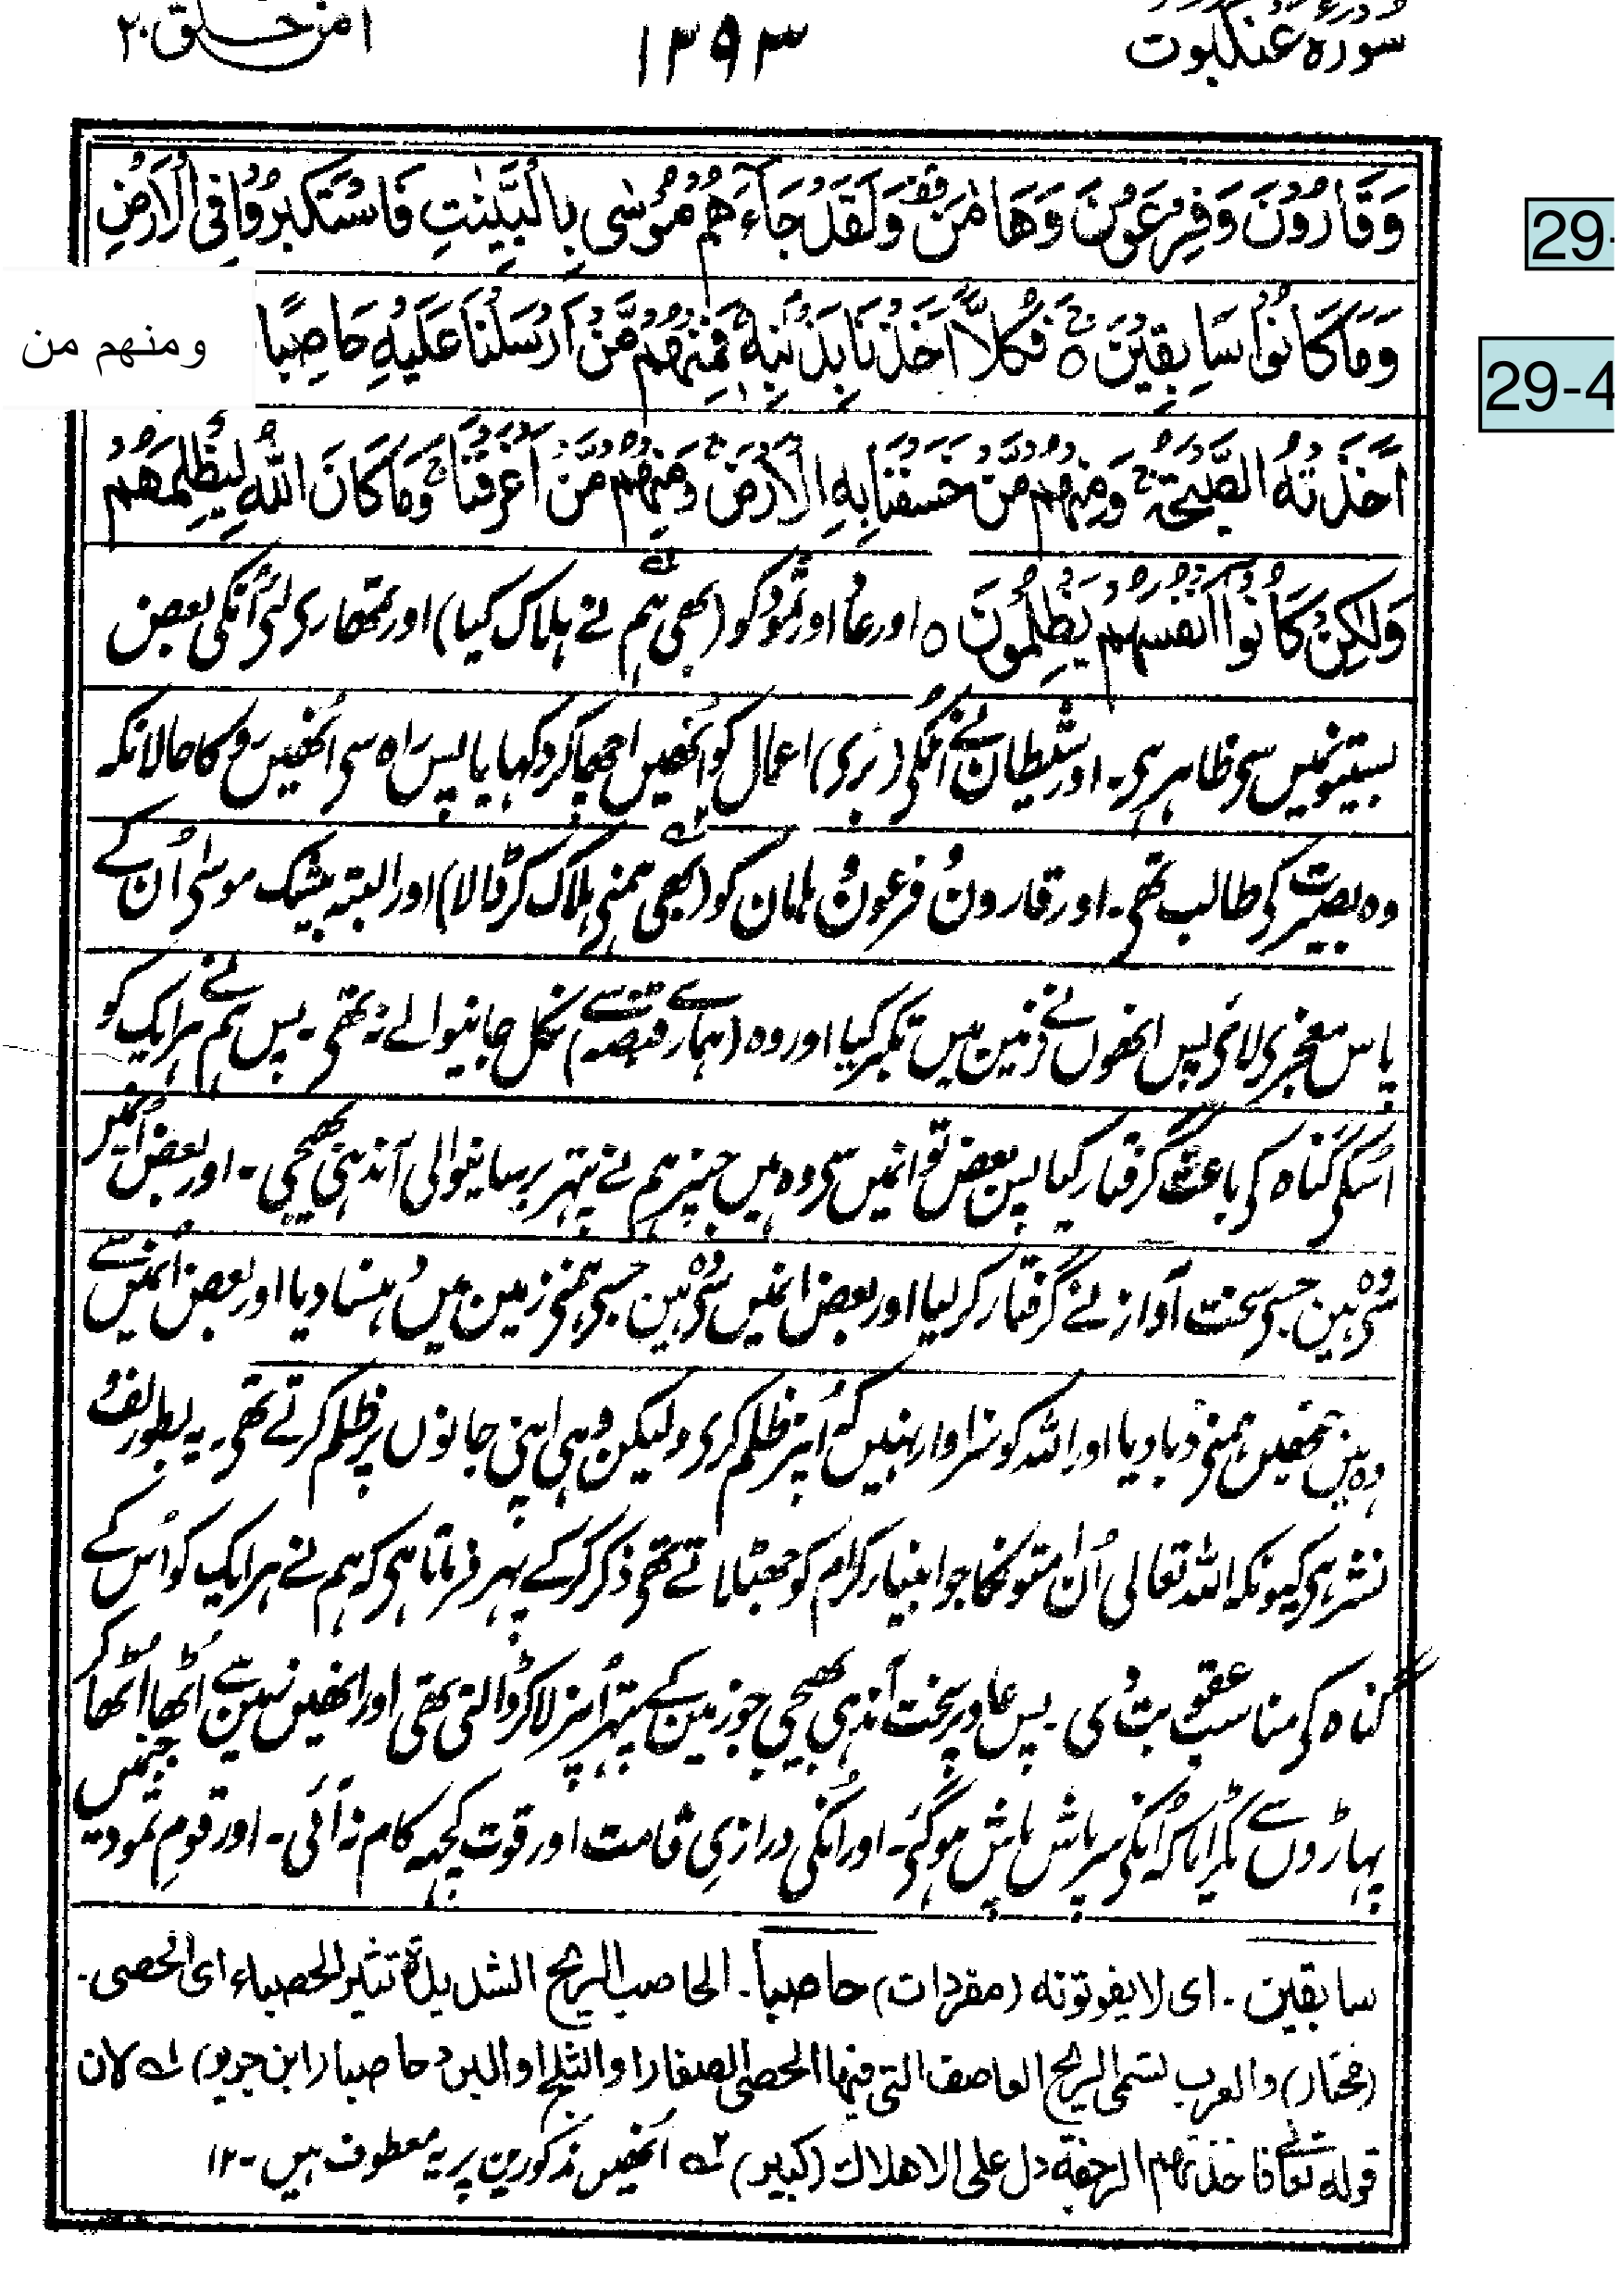 سورۂ عنکبوت
۱۳۹۳
امن خلق ۲۰
وَقَارُوْنَ وَفِرْعَوْنَ وَهَامٰنَ وَلَقَدْ جَآءَهُمْ مُّوْسٰى بِالْبَيِّنٰتِ فَاسْتَكْبَرُوْا فِى الْاَرْضِ
29-
وَمَا كَانُوْا سَابِقِيْنَ ۝ فَكُلًّا اَخَذْنَا بِذَنْۢبِهٖ فَمِنْهُمْ مَّنْ اَرْسَلْنَا عَلَيْهِ حَاصِبًا ومنهم من
29-4
اَخَذَتْهُ الصَّيْحَةُ وَمِنْهُمْ مَّنْ خَسَفْنَا بِهِ الْاَرْضَ وَمِنْهُمْ مَّنْ اَغْرَقْنَا وَمَا كَانَ اللهُ لِيَظْلِمَهُمْ
وَلٰكِنْ كَانُوْا اَنْفُسَهُمْ يَظْلِمُوْنَ ۝ اور عاد اور ثمود کو (بھی ہم نے ہلاک کیا) اور تمھاری لئے اُنکی بعض
بستیونمیں سے ظاہر ہے۔ اور شیطان نے اُنکی (بری) اعمال کو اُنھیں اچھا کر دکھایا پس راہ سے انھیں روکا حالانکہ
وہ بصیرت کی طالب تھی۔ اور قارون و فرعون و ہامان کو (بھی ہمنے ہلاک کر ڈالا) اور البتہ بیشک موسیٰ اُن کے
پاس معجزے لائے پس انھوں نے زمین میں تکبر کیا اور وہ (ہمارے قبضہ سے) نکل جانیوالے نہ تھے۔ پس ہم نے ہر ایک کو
اُسکی گناہ کی باعث گرفتار کیا پس بعض تو انمیں سے وہ ہیں جنپر ہم نے پتھر برسانیوالی آندھی بھیجی۔ اور بعض اُنمیں
سے وہ ہین جسے سخت آواز نے گرفتار کر لیا اور بعض انمیں سے وہ ہین جسے ہمنے زمین میں دھنسا دیا اور بعض اُنمیں سے
وہ ہین جنھیں ہمنے ڈبا دیا اور اللہ کو سزاوار نہیں کہ اُنپر ظلم کرے ولیکن وہی اپنی جانوں پر ظلم کرتے تھے۔ یہ بطور لف و
نشر ہے کیونکہ اللہ تعالی اُن امتونکا جو انبیاء کرام کو جھٹلاتے تھے ذکر کر کے پھر فرماتا ہے کہ ہم نے ہر ایک کو اُس کے
گناہ کی مناسب عقوبت دی۔ پس عاد پر سخت آندھی بھیجی جو زمین کے پتھر اُنپر لا کر ڈالتی تھی اور انھیں زمین سے اُٹھا اُٹھا کر
پہاڑوں سے ٹکراتا کہ اُنکی سر پاش پاش ہو گئے۔ اور اُنکی درازیِ قامت اور قوت کچھ کام نہ آئی۔ اور قومِ ثمود پر جنمیں
سابقین۔ ای لا یفوتونه (مفردات) حاصبا۔ الحاصب الریح الشدیدة تثیر الحصباء ای الحصی۔
(مختار) والعرب تسمی الریح العاصف التی فیها الحصی الصغار او الثلج او البرد حاصبا (ابن جریر) لان
قوله تعالی فاخذتهم الرجفة دل علی الاهلاك (کبیر) انھیں مذکورین پر یہ معطوف ہیں۔ ۱۲